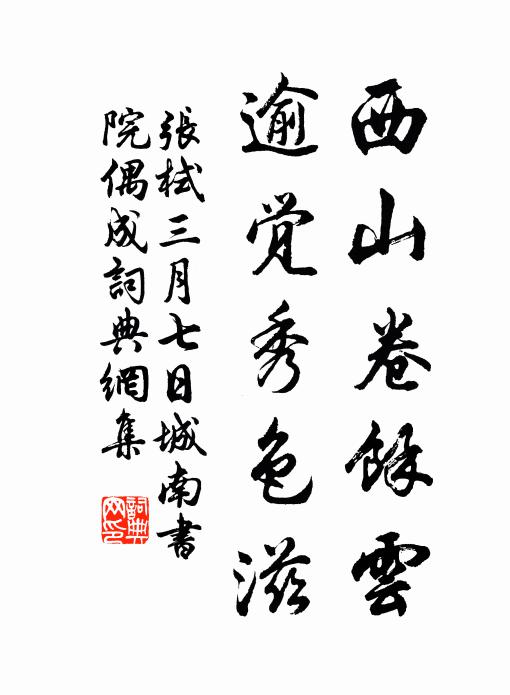 西山卷餘雲
逾觉秀色滋
張栻三月七日城南書
院偶成詞典網集
詞典
网印